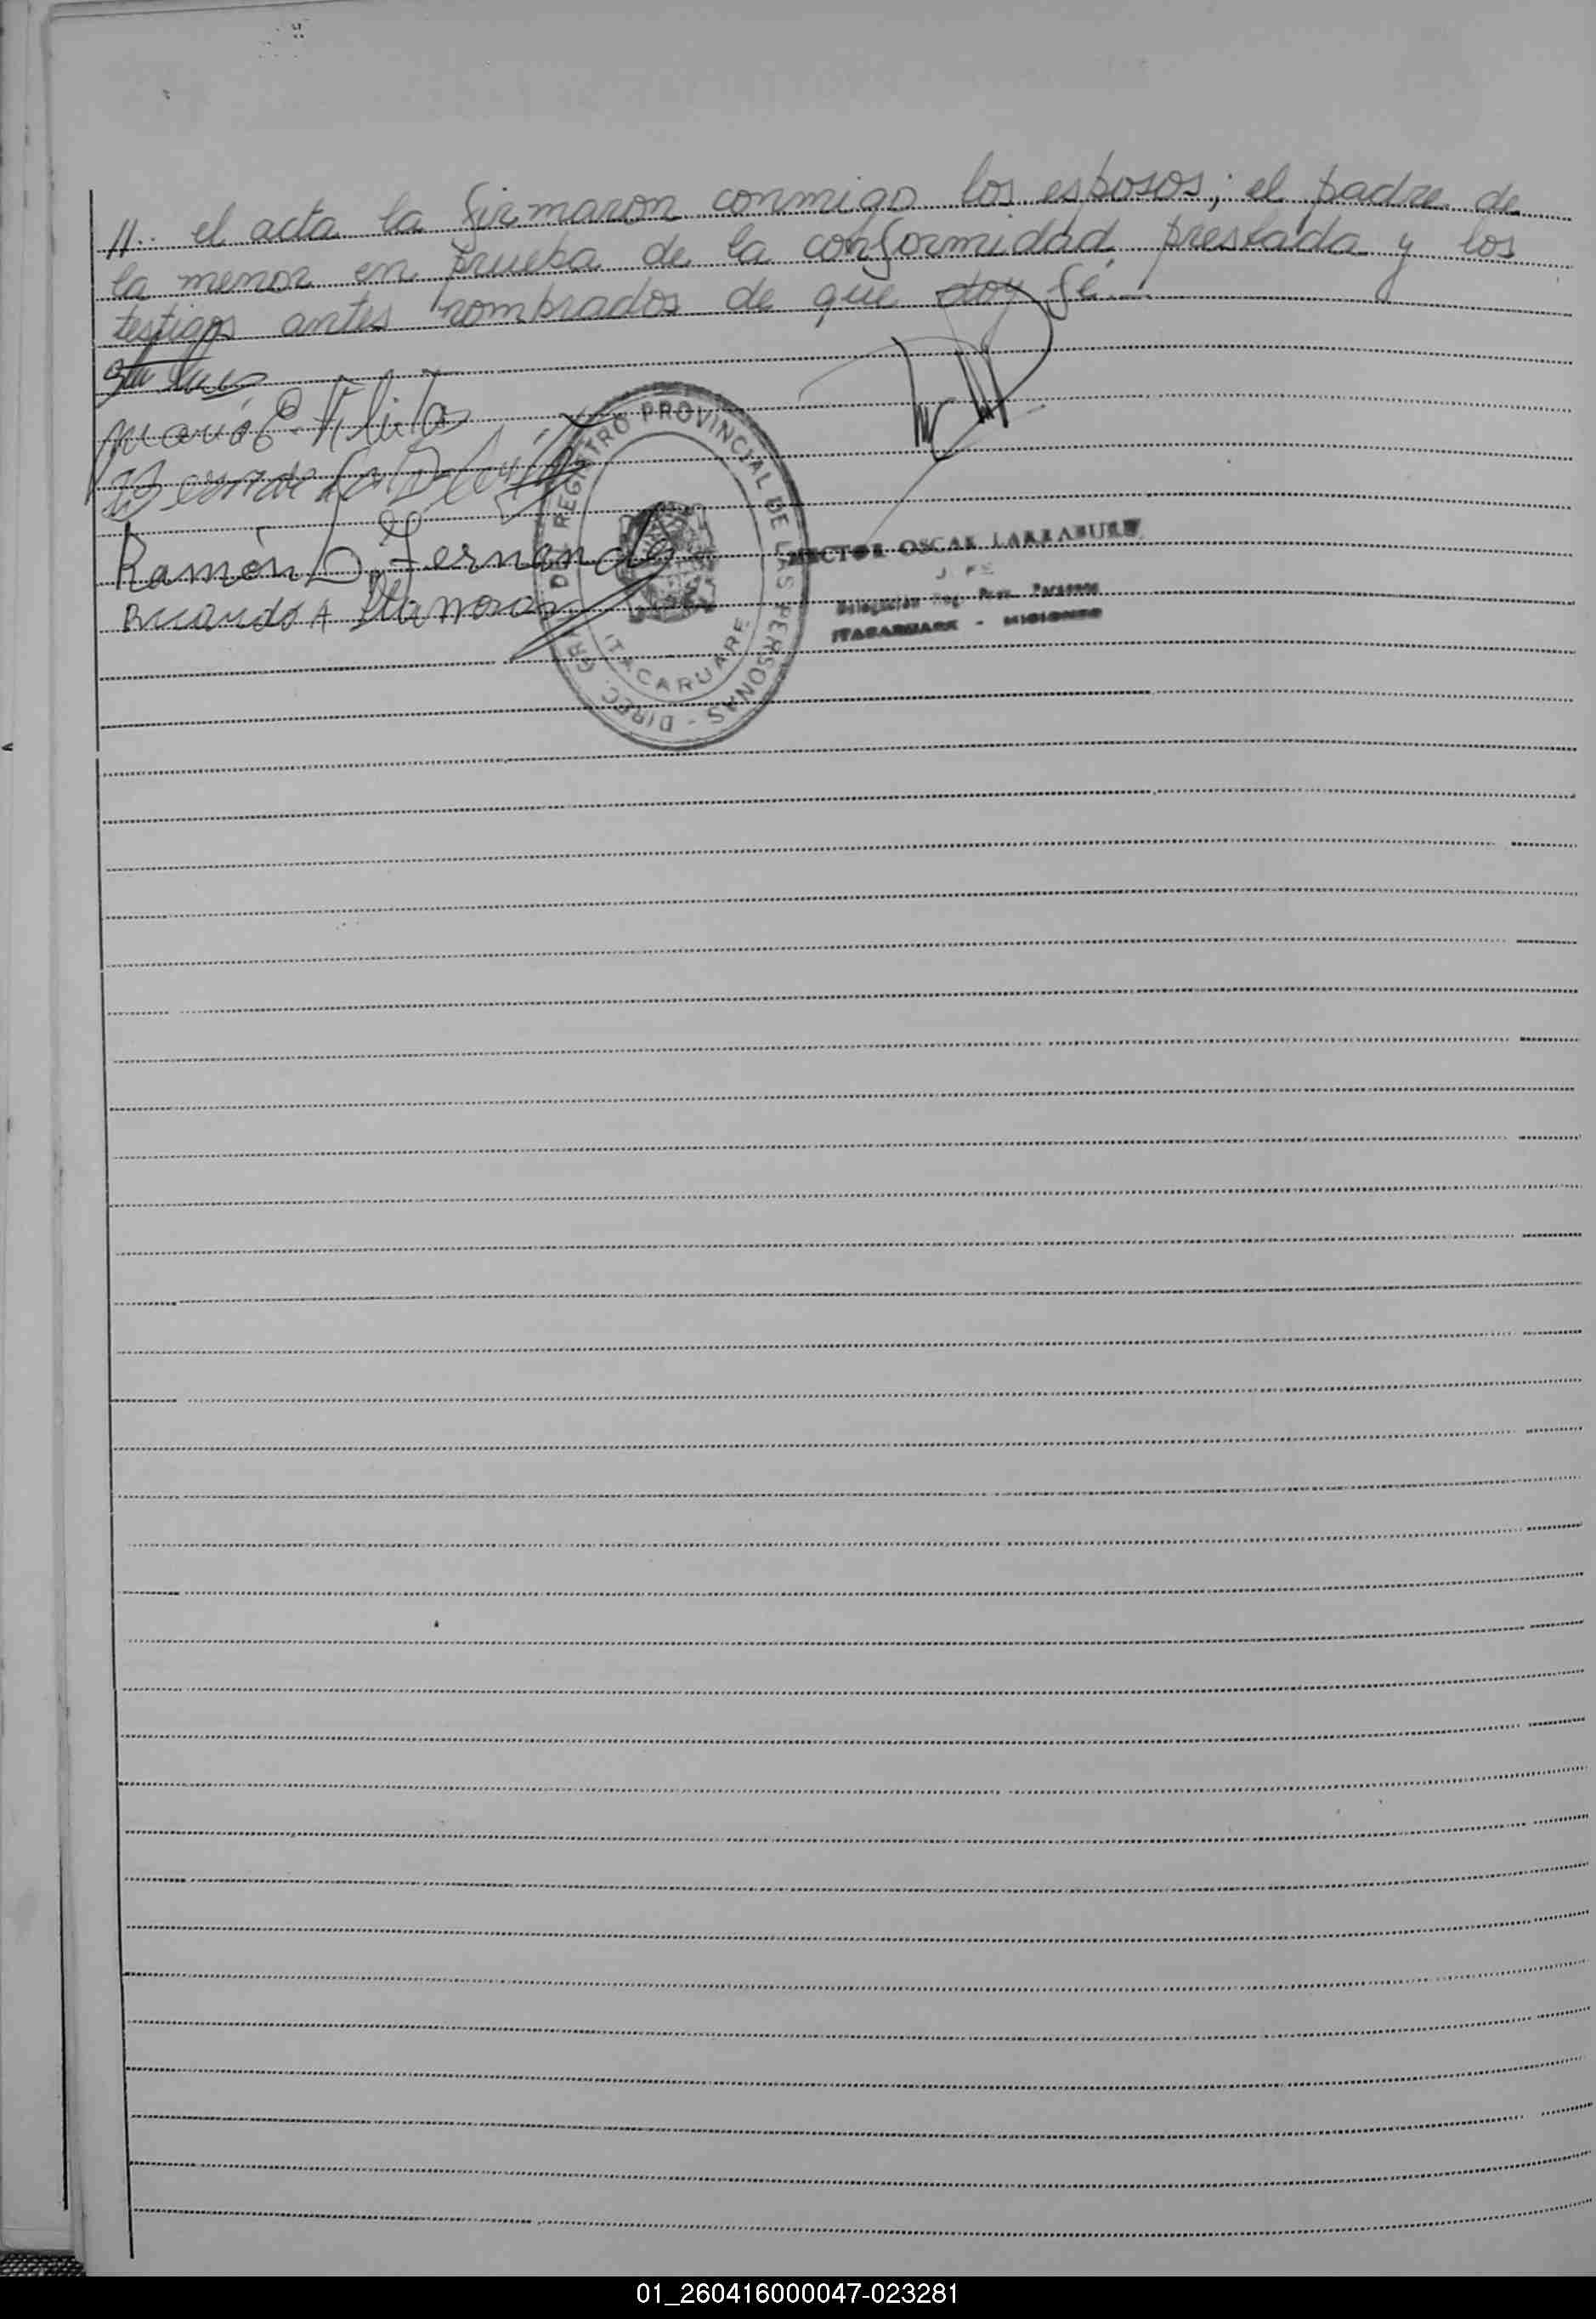 //.. el acta la firmaron conmigo los esposos; el padre de
la menor en prueba de la conformidad prestada y los
testigos antes nombrados de que doy fé.—
Ramón D. Fernande
Ricardo A
DIREC. GRAL. DEL REGISTRO PROVINCIAL DE LAS PERSONAS -
ITACARUARE
HECTOR OSCAR LARRABURU
JEFE
Delegación Reg. Prov. Personas
ITACARUARE - MISIONES
01_260416000047-023281